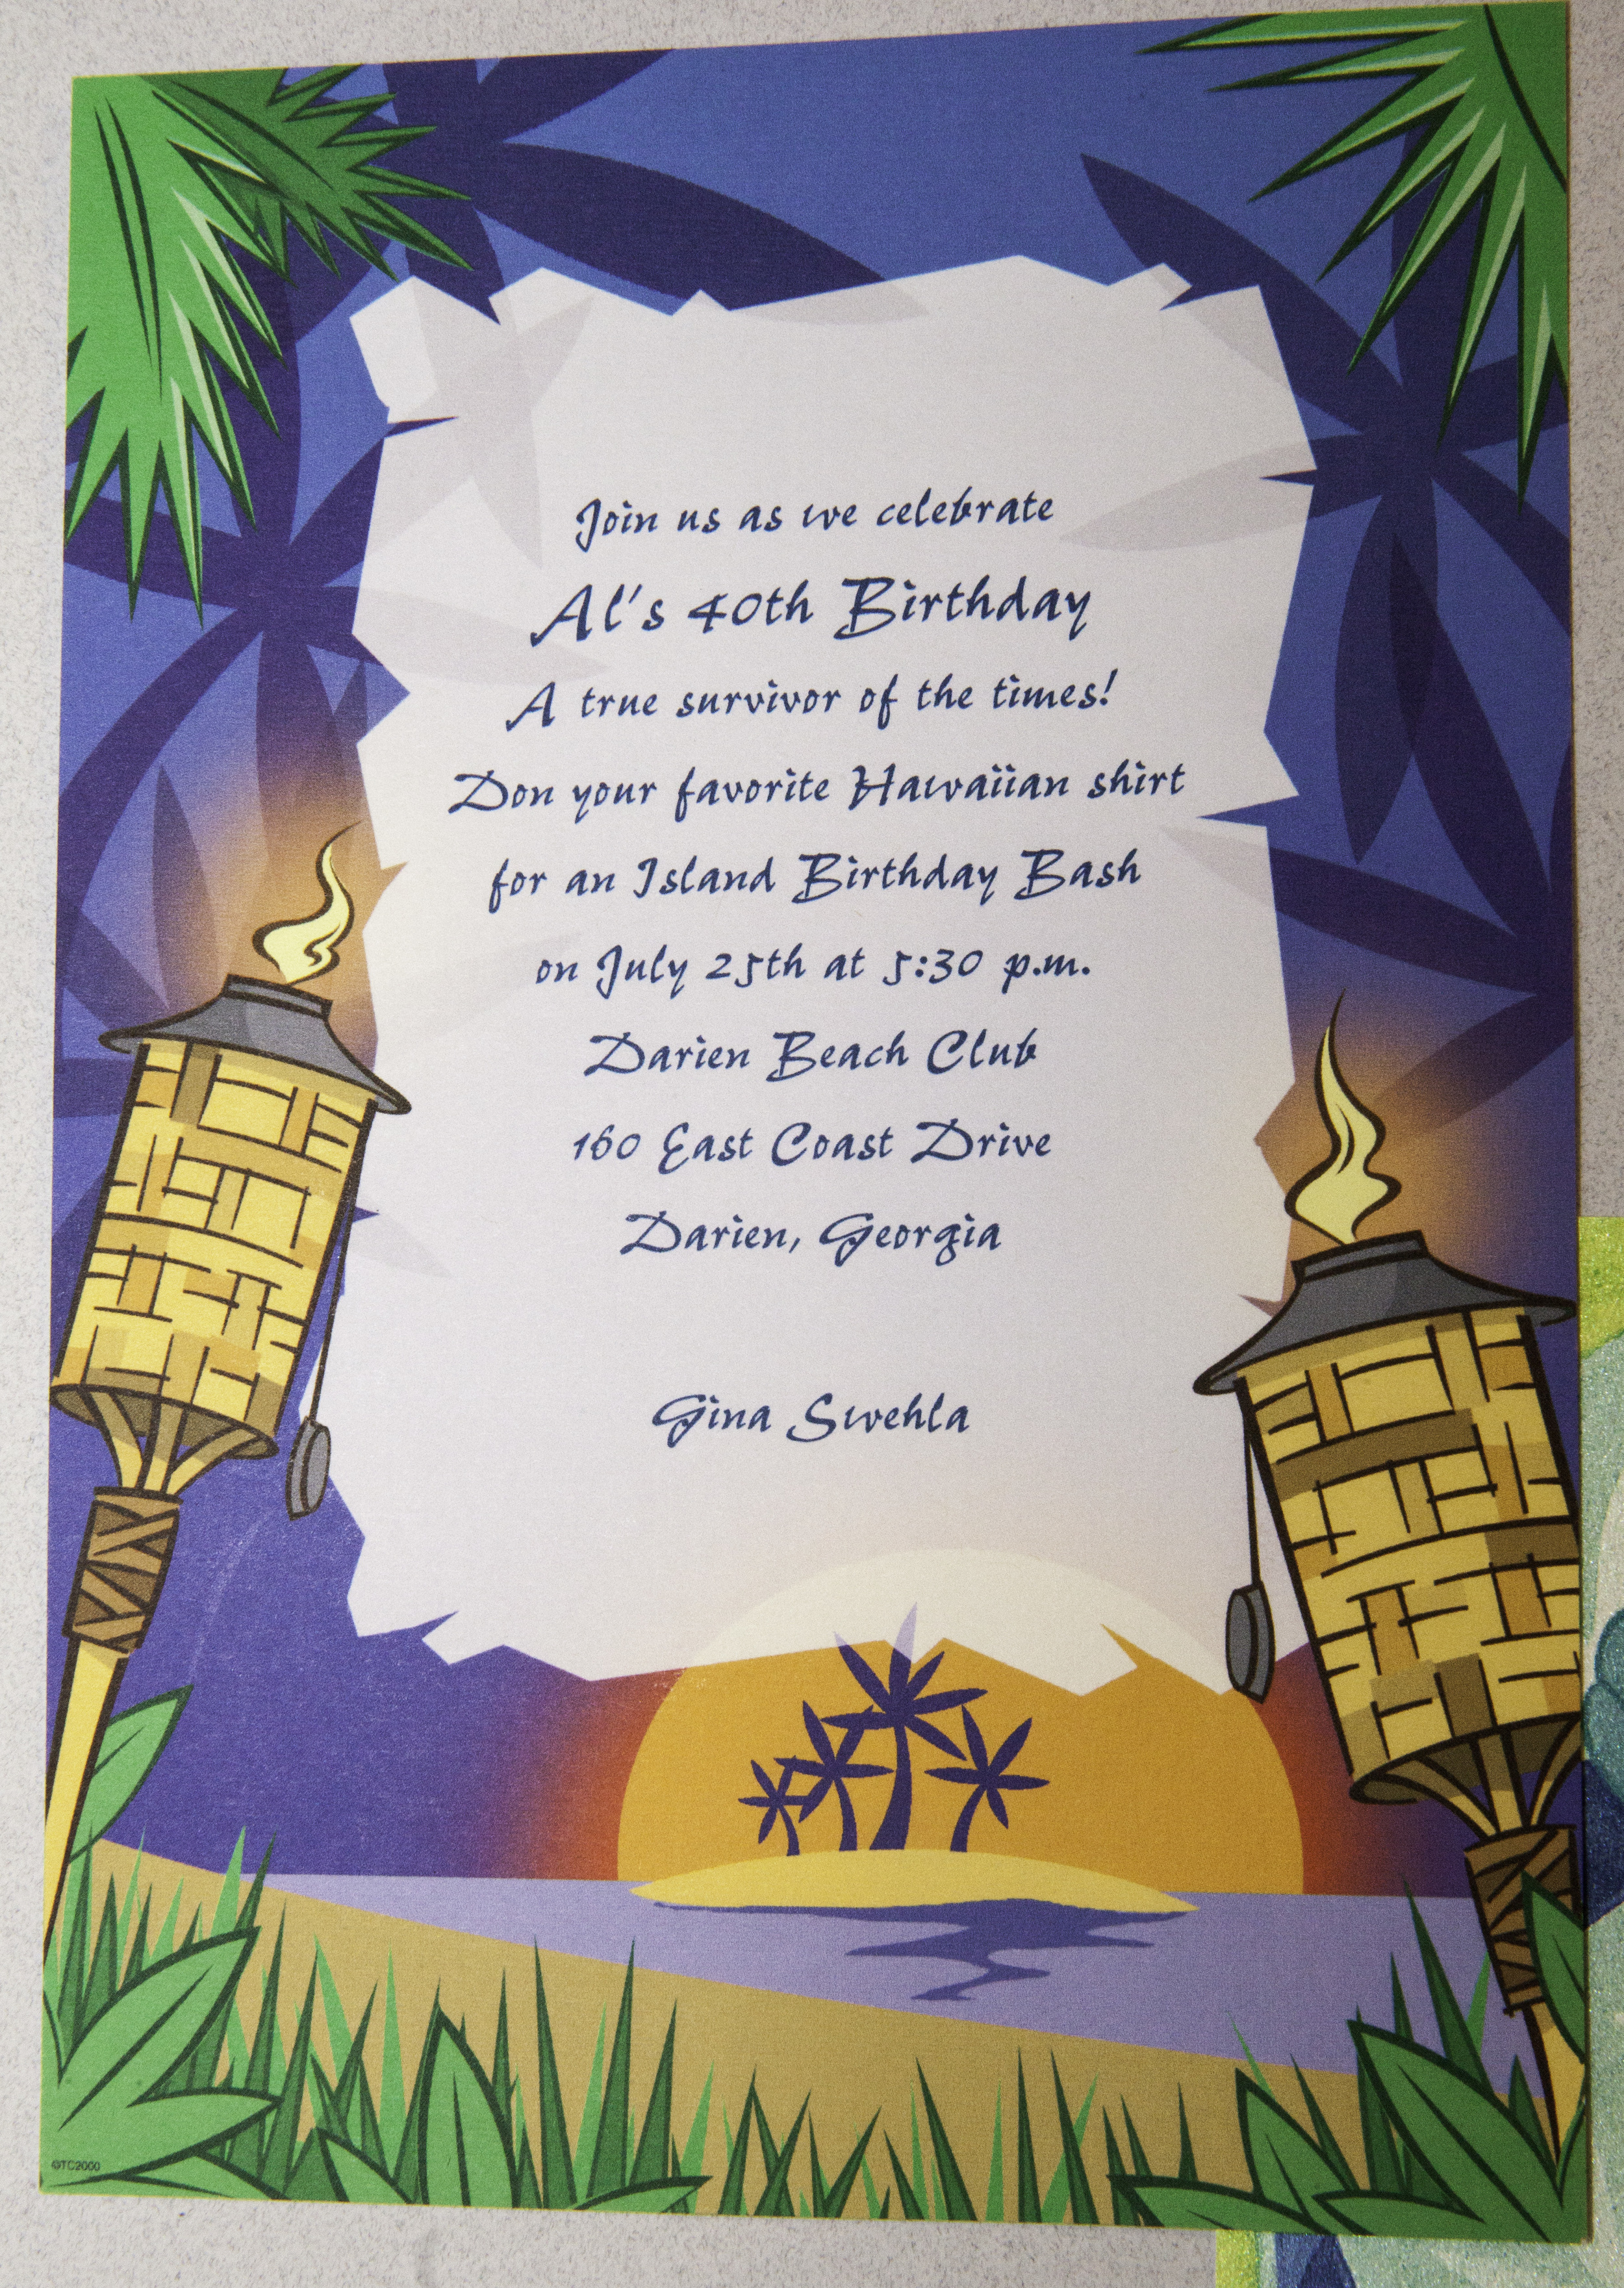 Join us as we celebrate
Al's 40th Birthday
A true survivor of the times!
Don your favorite Hawaiian shirt
for an Island Birthday Bash
on July 25th at 5:30 p.m.
Darien Beach Club
160 East Coast Drive
Darien, Georgia
Gina Swehla
©TC2000